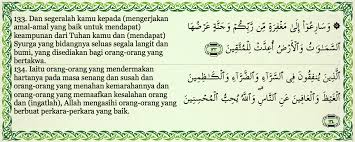 133. Dan segeralah kamu kepada (mengerjakan
amal-amal yang baik untuk mendapat)
keampunan dari Tuhan kamu dan (mendapat)
Syurga yang bidangnya seluas segala langit dan
bumi, yang disediakan bagi orang-orang yang
bertakwa.
134. Iaitu orang-orang yang mendermakan
hartanya pada masa senang dan susah dan
orang-orang yang menahan kemarahannya dan
orang-orang yang memaafkan kesalahan orang
dan (ingatlah), Allah mengasihi orang-orang yang
berbuat perkara-perkara yang baik.
وَسَارِعُوٓا۟ إِلَىٰ مَغْفِرَةٍ مِّن رَّبِّكُمْ وَجَنَّةٍ عَرْضُهَا
ٱلسَّمَـٰوَٰتُ وَٱلْأَرْضُ أُعِدَّتْ لِلْمُتَّقِينَ
ٱلَّذِينَ يُنفِقُونَ فِى ٱلسَّرَّآءِ وَٱلضَّرَّآءِ وَٱلْكَـٰظِمِينَ
ٱلْغَيْظَ وَٱلْعَافِينَ عَنِ ٱلنَّاسِ وَٱللَّهُ يُحِبُّ ٱلْمُحْسِنِينَ